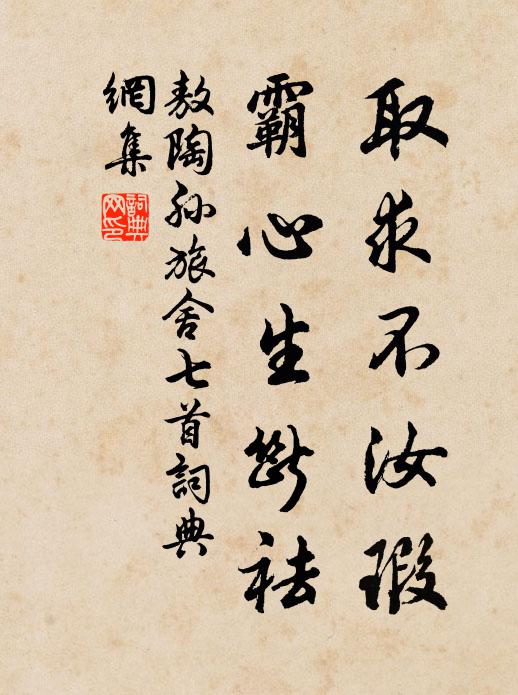 取求不汝瑕
霸心生斷袪
敖陶孫旅舍七首詞典
網集
詞典網印